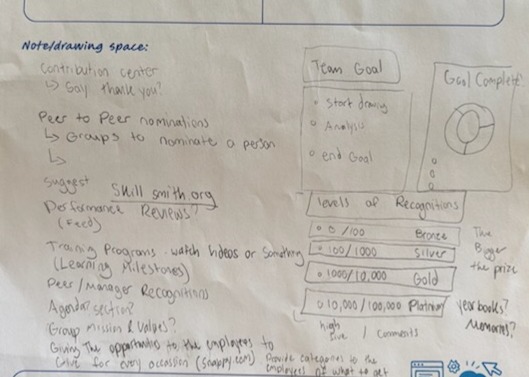 Note/drawing space:
Contribution center
↳ Say thank you?
Peer to Peer nominations
↳ Groups to nominate a person
↳
Suggest
Skill smith.org
Performance Reviews?
(Feed)
Training Programs - watch videos or something
(Learning Milestones)
Peer/Manager Recognitions
Agenda? section?
Group mission & values?
Giving the opportunity to the employees to
for every occassion (Snappy.com) Provide categories to the
employees of what to get
Team Goal
Start
Analysis
end Goal
Goal Complete?
levels of Recognitions
0/100 Bronze
100/1000 Silver
1000/10,000 Gold
10,000/100,000 Platinum
The
Bigger
the prize
year books?
Memories?
high
five / Comments